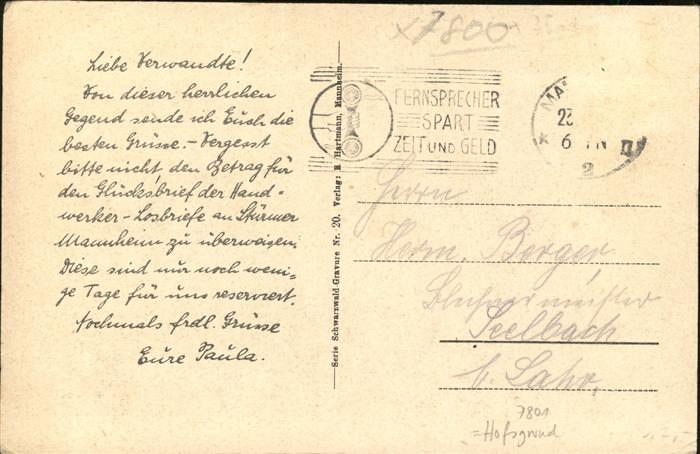 x7800
Liebe Verwandte!
Von dieser herrlichen
Gegend sende ich Euch die
besten Grüsse. – Vergesst
bitte nicht, den Betrag für
den Glücksbrief der Hand-
werker-Losbriefe an Stürmer
Mannheim zu überweisen.
Diese sind nur noch weni-
ge Tage für uns reserviert.
Nochmals frdl. Grüsse
Eure Paula.
Serie Schwarzwald-Gravure Nr. 20. Verlag: Hartmann, Mannheim.
FERNSPRECHER
SPART
ZEIT UND GELD
MA
23
6
2
Herrn
Herm. Berger
Blechnermeister
Seelbach
b. Lahr,
7801
=Hofsgrund